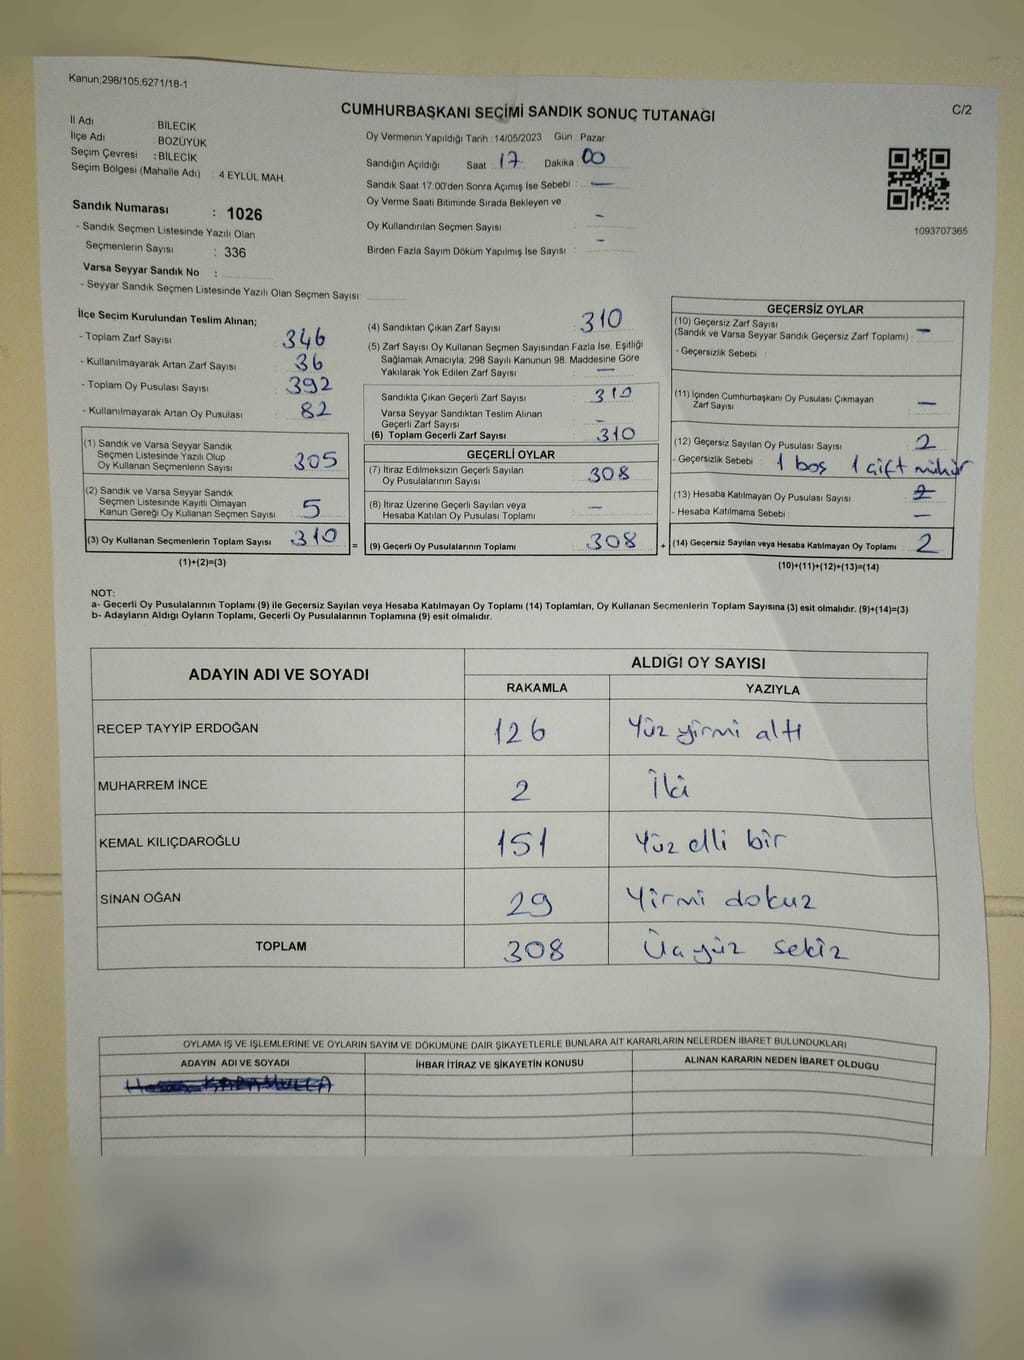 Kanun;298/105;6271/18-1
C/2
CUMHURBAŞKANI SEÇİMİ SANDIK SONUÇ TUTANAĞI
İl Adı : BİLECİK
İlçe Adı : BOZÜYÜK
Seçim Çevresi : BİLECİK
Seçim Bölgesi (Mahalle Adı) : 4 EYLÜL MAH.
Sandık Numarası : 1026
- Sandık Seçmen Listesinde Yazılı Olan
Seçmenlerin Sayısı : 336
Varsa Seyyar Sandık No :
- Seyyar Sandık Seçmen Listesinde Yazılı Olan Seçmen Sayısı:
Oy Vermenin Yapıldığı Tarih : 14/05/2023 Gün Pazar
Sandığın Açıldığı Saat 17 Dakika 00
Sandık Saat 17:00'den Sonra Açımış İse Sebebi : —
Oy Verme Saati Bitiminde Sırada Bekleyen ve
Oy Kullandırılan Seçmen Sayısı : –
Birden Fazla Sayım Döküm Yapılmış İse Sayısı : –
1093707365
İlçe Seçim Kurulundan Teslim Alınan;
- Toplam Zarf Sayısı 346
- Kullanılmayarak Artan Zarf Sayısı 36
- Toplam Oy Pusulası Sayısı 392
- Kullanılmayarak Artan Oy Pusulası 82
(1) Sandık ve Varsa Seyyar Sandık
Seçmen Listesinde Yazılı Olup
Oy Kullanan Seçmenlerin Sayısı 305
(2) Sandık ve Varsa Seyyar Sandık
Seçmen Listesinde Kayıtlı Olmayan
Kanun Gereği Oy Kullanan Seçmen Sayısı 5
(3) Oy Kullanan Seçmenlerin Toplam Sayısı 310
(1)+(2)=(3)
=
(4) Sandıktan Çıkan Zarf Sayısı 310
(5) Zarf Sayısı Oy Kullanan Seçmen Sayısından Fazla İse, Eşitliği
Sağlamak Amacıyla, 298 Sayılı Kanunun 98. Maddesine Göre
Yakılarak Yok Edilen Zarf Sayısı : —
Sandıkta Çıkan Geçerli Zarf Sayısı : 310
Varsa Seyyar Sandıktan Teslim Alınan
Geçerli Zarf Sayısı : –
(6) Toplam Geçerli Zarf Sayısı : 310
GEÇERLİ OYLAR
(7) İtiraz Edilmeksizin Geçerli Sayılan
Oy Pusulalarının Sayısı : 308
(8) İtiraz Üzerine Geçerli Sayılan veya
Hesaba Katılan Oy Pusulası Toplamı : —
(9) Geçerli Oy Pusulalarının Toplamı : 308
+
GEÇERSİZ OYLAR
(10) Geçersiz Zarf Sayısı
(Sandık ve Varsa Seyyar Sandık Geçersiz Zarf Toplamı) : —
- Geçersizlik Sebebi :
(11) İçinden Cumhurbaşkanı Oy Pusulası Çıkmayan
Zarf Sayısı : —
(12) Geçersiz Sayılan Oy Pusulası Sayısı : 2
- Geçersizlik Sebebi : 1 boş 1 çift mühür
(13) Hesaba Katılmayan Oy Pusulası Sayısı : 2
- Hesaba Katılmama Sebebi : —
(14) Geçersiz Sayılan veya Hesaba Katılmayan Oy Toplamı : 2
(10)+(11)+(12)+(13)=(14)
NOT:
a- Geçerli Oy Pusulalarının Toplamı (9) ile Geçersiz Sayılan veya Hesaba Katılmayan Oy Toplamı (14) Toplamları, Oy Kullanan Seçmenlerin Toplam Sayısına (3) eşit olmalıdır. (9)+(14)=(3)
b- Adayların Aldığı Oyların Toplamı, Geçerli Oy Pusulalarının Toplamına (9) eşit olmalıdır.
ADAYIN ADI VE SOYADI
ALDIĞI OY SAYISI
RAKAMLA YAZIYLA
RECEP TAYYİP ERDOĞAN 126 Yüz yirmi altı
MUHARREM İNCE 2 İki
KEMAL KILIÇDAROĞLU 151 Yüz elli bir
SİNAN OĞAN 29 Yirmi dokuz
TOPLAM 308 Üç yüz sekiz
OYLAMA İŞ VE İŞLEMLERİNE VE OYLARIN SAYIM VE DÖKÜMÜNE DAİR ŞİKAYETLERLE BUNLARA AİT KARARLARIN NELERDEN İBARET BULUNDUKLARI
ADAYIN ADI VE SOYADI İHBAR İTİRAZ VE ŞİKAYETİN KONUSU ALINAN KARARIN NEDEN İBARET OLDUĞU